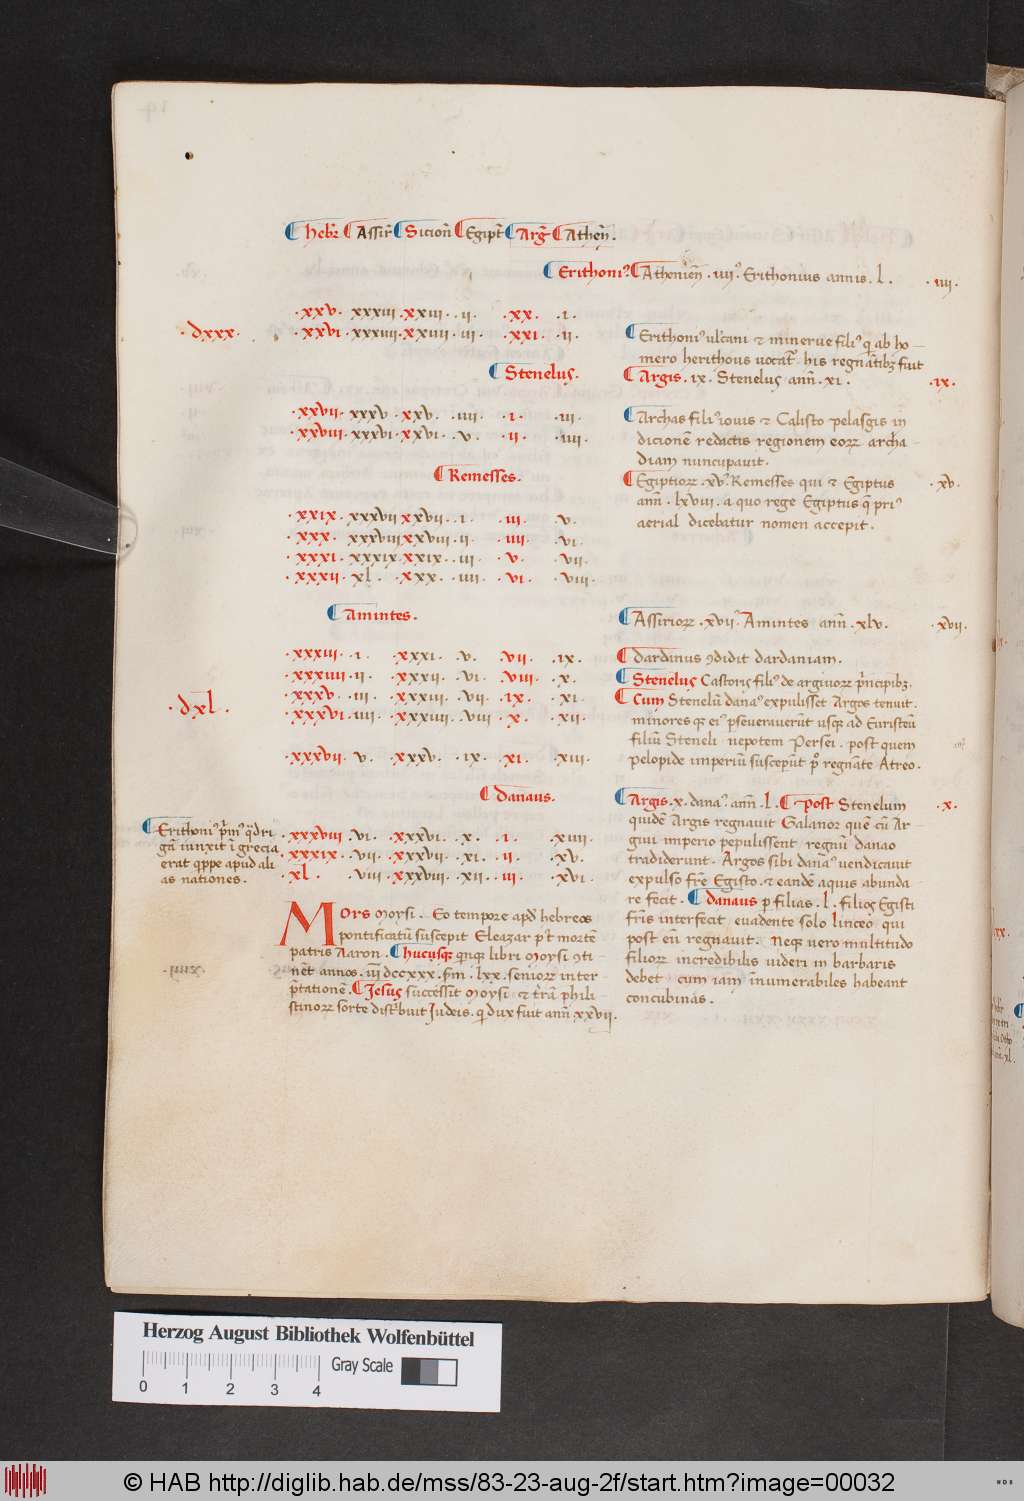 Hebr̄ Assir̄ Sicion̄ Egipt̄ Arḡ Athen̄.
Erithoniꝰ
Athenien̄ . iiij.ꝰ Erithonius annis . l .
. iiij .
. xxv . xxxiii . xxiii . ii . . xx . . i .
. dxxx .
. xxvi . xxxiiii . xxiiii . iii . . xxi . . ii .
Erithoniꝰ ulcani ⁊ minerue filiꝰ q̄ ab ho
mero herithous uocat᷑ . his regnātibꝫ fuit
Stenelus .
Argis . ix . Stenelus ann̄ . xi .
. ix .
. xxvii . xxxv . xxv . . iiii . . i . . iii .
. xxviii . xxxvi . xxvi . . v . . ii . . iiii .
Archas filiꝰ iouis ⁊ Calisto pelasgis in
dicionē redactis regionem eoꝝ archa
diam nuncupauit .
Remesses .
Egiptioꝝ . xv.ꝰ Remesses qui ⁊ Egiptus
. xv .
ann̄ . lxviii . a quo rege Egiptus q̄ priꝰ
aerial dicebatur nomen accepit .
. xxix . xxxvii xxvii . . i . . iii . . v .
. xxx . xxxviii xxviii . ii . . iiii . . vi .
. xxxi . xxxix . xxix . . iii . . v . . vii .
. xxxii . xl . . xxx . . iiii . . vi . . viii .
Amintes .
Assirioꝝ . xvii.ꝰ Amintes ann̄ . xlv .
. xvii .
. xxxiii . i . . xxxi . . v . . vii . . ix .
. xxxiiii . ii . . xxxii . . vi . . viii . . x .
. dxl .
. xxxv . iii . . xxxiii . vii . . ix . . xi .
. xxxvi . iiii . . xxxiiii . viii . x . . xii .
. xxxvii . v . . xxxv . . ix . . xi . . xiii .
dardinus ꝯdidit dardaniam .
Stenelus Castoris filiꝰ de argiuoꝝ p̄ncipibꝫ .
Cum Stenelū danaꝰ expulisset Argos tenuit .
minores qꝫ eiꝰ pseuerauerūt usqꝫ ad Euristeū
filiū Steneli nepotem Persei . post quem
pelopide imperiū susceper̄t pꝰ regnāte Atreo .
Danaus .
Argis . x . danaꝰ . ann̄ . l . Post Stenelum
. x .
quidē Argis regnauit Galanor quē cū Ar
giui imperio pepulissent regnū danao
tradiderunt . Argos sibi danaꝰ uendicauit
expulso fr̄e Egisto . ⁊ eandē aquis abunda
re fecit . Danaus p filias . l . filios Egisti
fr̄is interfecit euadente solo linceo qui
post eū regnauit . Neqꝫ uero multitudo
filioꝝ incredibilis uideri in barbaris
debet cum iam innumerabiles habeant
concubinas .
Erithoniꝰ p̄mꝰ q̄dri
gā iunxit ī grecia
erat q̄ppe apud ali
as nationes .
. xxxviii . vi . . xxxvi . . x . . i . . xiiii .
. xxxix . . vii . . xxxvii . . xi . . ii . . xv .
. xl . . viii . xxxviii . . xii . . iii . . xvi .
Mors Moysi . Eo tempore apd̄ hebreos
pontificatū suscepit Eleazar p̄t mortē
patris Aaron . Hucusqꝫ qnqꝫ libri Moysi ꝯti
nēt annos . iii dccxxx . s̄m . lxx . senioꝝ inter
p̄tationē . Jesus successit Moysi ⁊ t̄rā phili
stinoꝝ sorte distribuit Judeis . q̄ dux fuit ann̄ xxvii .
Herzog August Bibliothek Wolfenbüttel
Gray Scale
0 1 2 3 4
© HAB http://diglib.hab.de/mss/83-23-aug-2f/start.htm?image=00032